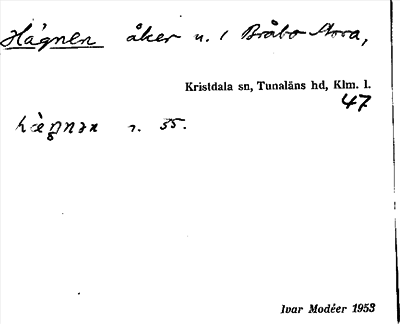 Hägnen åker u. / Bråbo Norra,
Kristdala sn, Tunaläns hd, Klm. l.
47
hæ̀ŋnən 1. 55.
Ivar Modéer 1953